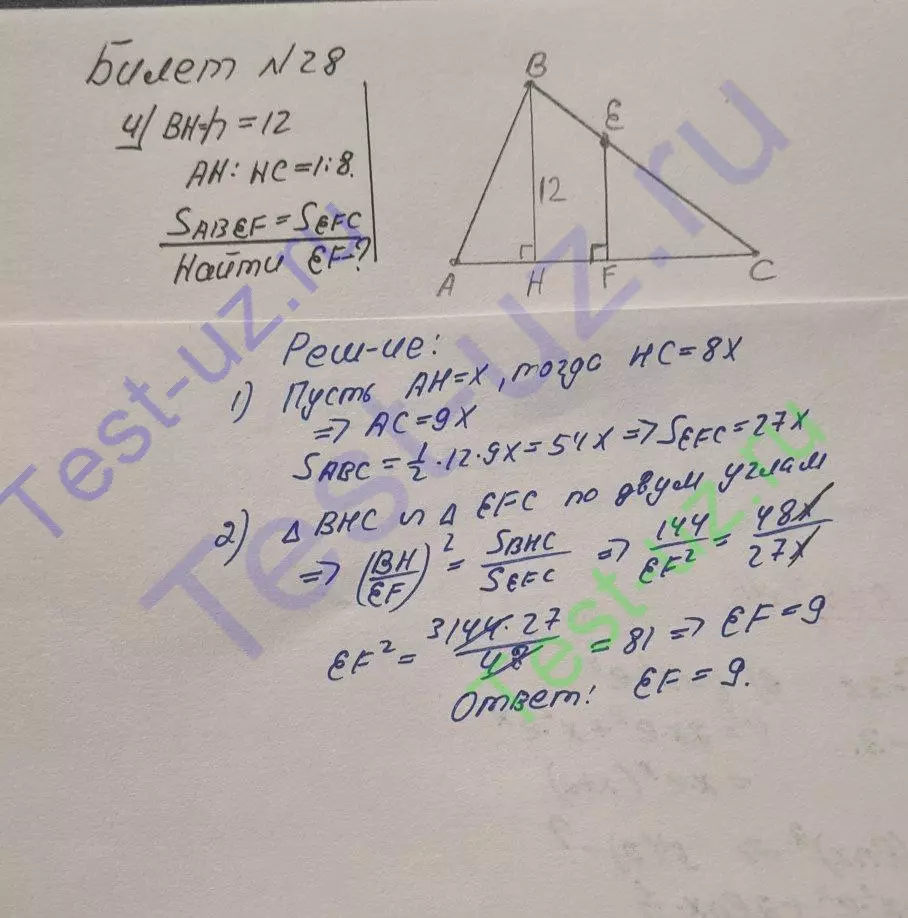 Билет №28
4) BH=h=12
AH:HC=1:8.
SABEF=SEFC
Найти EF-?
B
E
12
A
H
F
C
Реш-ие:
1) Пусть AH=x, тогда HC=8x
=> AC=9x
SABC=1/2·12·9x=54x=>SEFC=27x
2) △BHC ∾ △EFC по двум углам
=> (BH/EF)²=SBHC/SEFC => 144/EF²=48x/27x
EF²=3 144·27/48=81=> EF=9
Ответ: EF=9.
Test-uz.ru
Test-uz.ru
Test-uz.ru